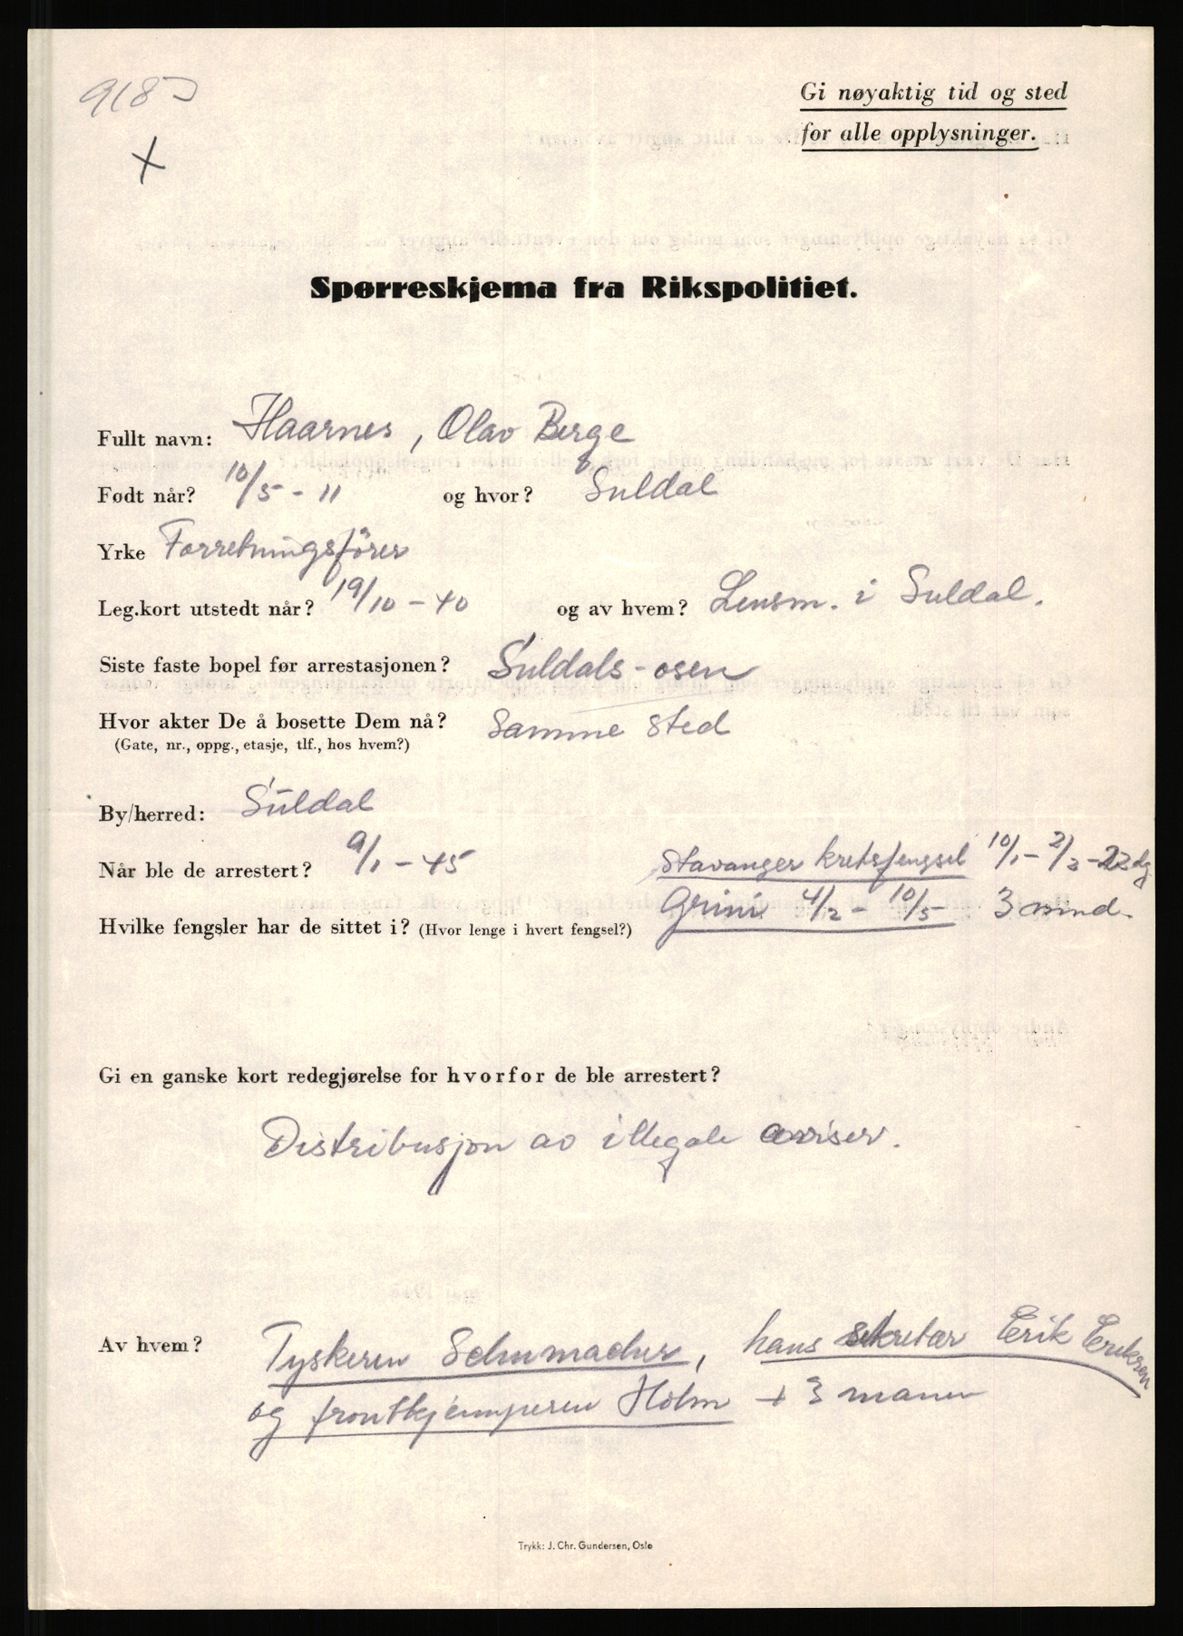 918
x
Gi nøyaktig tid og sted
for alle opplysninger.
Spørreskjema fra Rikspolitiet.
Fullt navn: Haarnes, Olav Berge
Født når? 10/5 - 11 og hvor? Suldal
Yrke Forretningsförer
Leg.kort utstedt når? 19/10 - 40 og av hvem? Lensm. i Suldal.
Siste faste bopel før arrestasjonen? Suldals-osen
Hvor akter De å bosette Dem nå? Samme sted
(Gate, nr., oppg., etasje, tlf., hos hvem?)
By/herred: Suldal
Når ble de arrestert? 9/1 - 45 Stavanger kretsfengsel 10/1 - 2/2 - 23 dg
Hvilke fengsler har de sittet i? (Hvor lenge i hvert fengsel?) Grini 4/2 - 10/5 3 mnd.
Gi en ganske kort redegjørelse for hvorfor de ble arrestert?
Distribusjon av illegale aviser.
Av hvem? Tyskeren Schumacher, hans sekretær Erik Eriksen
og frontkjemperen Holm + 3 mann
Trykk: J. Chr. Gundersen, Oslo